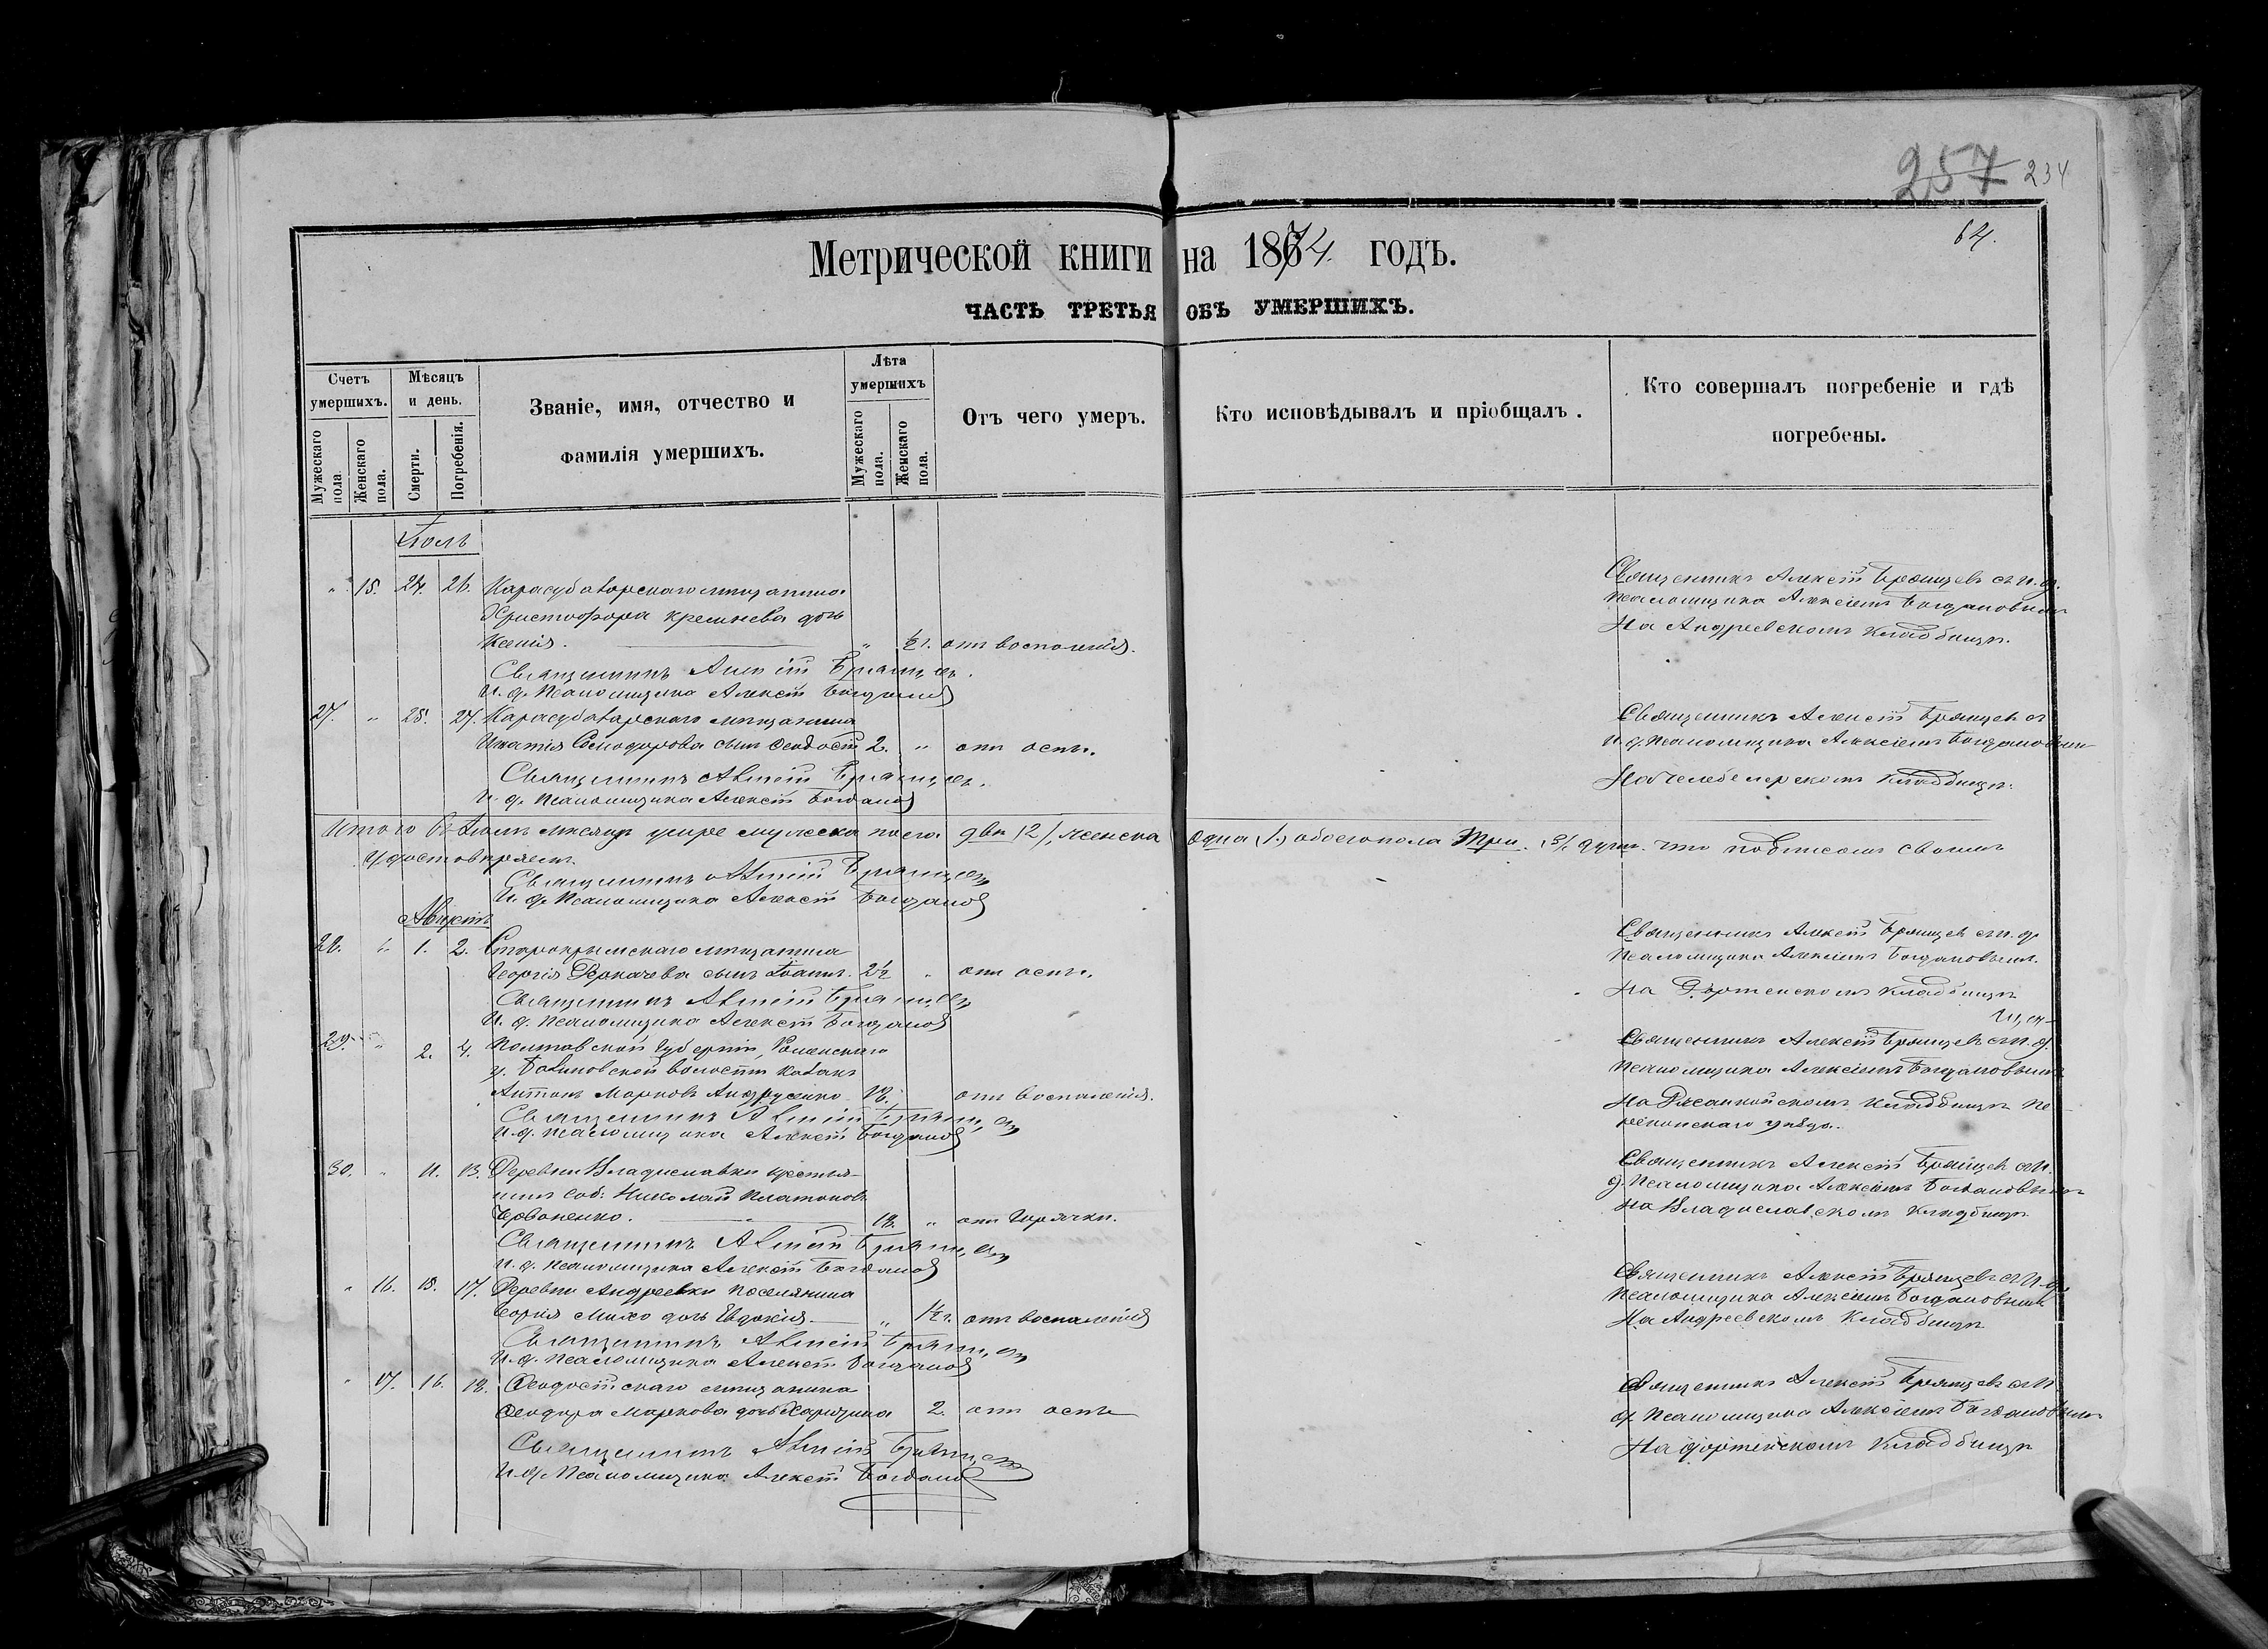 257 234
64.
Метрической книги на 1874. годъ.
ЧАСТЬ ТРЕТЬЯ ОБЪ УМЕРШИХЪ.
Счетъ умершихъ.
Мужескаго пола
Женскаго пола.
Мѣсяцъ и день.
Смерти.
Погребенія.
Званіе, имя, отчество и
фамилія умершихъ.
Лѣта умершихъ
Мужескаго пола.
Женскаго пола.
Отъ чего умеръ.
Кто исповѣдывалъ и пріобщалъ.
Кто совершалъ погребеніе и гдѣ
погребены.
Іюль
" 15. 24. 26. Карасубазарскаго мѣщанина
Христофора дочь
Ксенія. " ½ г. отъ воспаленія.
Священникъ Алексій Брянцевъ.
И. д. Псаломщика Алексѣй Богдановъ
Священникъ Алексій Брянцевъ съ и. д.
Псаломщика Алексіемъ Богдановымъ
На Андреевскомъ кладбищѣ.
27. " 25. 27. Карасубазарскаго мѣщанина
Игнатія сынъ Ѳеодосій 2. " отъ оспы.
Священникъ Алексій Брянцевъ.
И. д. Псаломщика Алексѣй Богдановъ
Священникъ Алексій Брянцевъ съ
и. д. Псаломщика Алексіемъ Богдановымъ
кладбищѣ.
Итого въ Іюлѣ мѣсяцѣ умре мужеска пола два /2/, женска одна /1/ обоего пола три /3/ душъ. что подписомъ своимъ
удостовѣряемъ
Священникъ Алексій Брянцевъ
И. д. Псаломщика Алексѣй Богдановъ
Августъ
28. " 1. 2. Старокрымскаго мѣщанина
Георгія сынъ Іоаннъ. 2½ " отъ оспы.
Священникъ Алексій Брянцевъ
И. д. Псаломщика Алексѣй Богдановъ
Священникъ Алексій Брянцевъ съ и. д.
Псаломщика Алексіемъ Богдановымъ.
На кладбищѣ
29. " 2. 4. Полтавской губерніи, Роменскаго
у. волости козакъ
Антонъ Марковъ Андрусенко отъ воспаленія.
Священникъ Алексій Брянцевъ
И. д. Псаломщика Алексѣй Богдановъ
Священникъ Алексій Брянцевъ съ и. д.
Псаломщика Алексіемъ Богдановымъ
На кладбищѣ
уѣзда.
30. " 11. 13. Деревни Владиславки крестья-
нинъ соб. Николай Платоновъ
18. " отъ горячки.
Священникъ Алексій Брянцевъ
И. д. Псаломщика Алексѣй Богдановъ
Священникъ Алексій Брянцевъ съ и.
д. Псаломщика Алексіемъ Богдановымъ
На Владиславскомъ кладбищѣ
" 16. 15. 17. Деревни Андреевки поселянина
дочь Евдокія. " 1½ г. отъ воспаленія
Священникъ Алексій Брянцевъ
И. д. Псаломщика Алексѣй Богдановъ
Священникъ Алексій Брянцевъ съ и. д.
Псаломщика Алексіемъ Богдановымъ
На Андреевскомъ кладбищѣ
" 17. 16. 18. Ѳеодосійскаго мѣщанина
Ѳеодора Маркова дочь 2. отъ оспы
Священникъ Алексій Брянцевъ
И. д. Псаломщика Алексѣй Богдановъ
Священникъ Алексій Брянцевъ съ и.
д. Псаломщика Алексіемъ Богдановымъ
На кладбищѣ